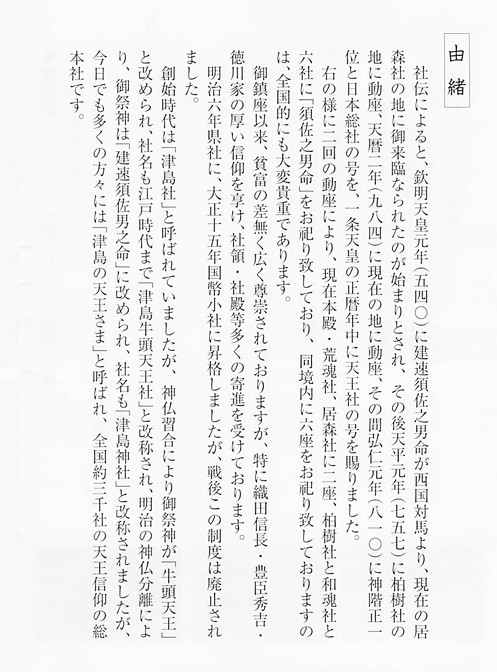 由緒
社伝によると、欽明天皇元年(五四〇)に建速須佐之男命が西国対馬より、現在の居
森社の地に御来臨なられたのが始まりとされ、その後天平元年(七五七)に柏樹社の
地に動座、天暦二年(九八四)に現在の地に動座、その間弘仁元年(八一〇)に神階正一
位と日本総社の号を、一条天皇の正暦年中に天王社の号を賜りました。
右の様に二回の動座により、現在本殿・荒魂社、居森社に二座、柏樹社と和魂社と
六社に「須佐之男命」をお祀り致しており、同境内に六座をお祀り致しておりますの
は、全国的にも大変貴重であります。
御鎮座以来、貧富の差無く広く尊崇されておりますが、特に織田信長・豊臣秀吉・
徳川家の厚い信仰を享け、社領・社殿等多くの寄進を受けております。
明治六年県社に、大正十五年国幣小社に昇格しましたが、戦後この制度は廃止され
ました。
創始時代は「津島社」と呼ばれていましたが、神仏習合により御祭神が「牛頭天王」
と改められ、社名も江戸時代まで「津島牛頭天王社」と改称され、明治の神仏分離によ
り、御祭神は「建速須佐男之命」に改められ、社名も「津島神社」と改称されましたが、
今日でも多くの方々には「津島の天王さま」と呼ばれ、全国約三千社の天王信仰の総
本社です。